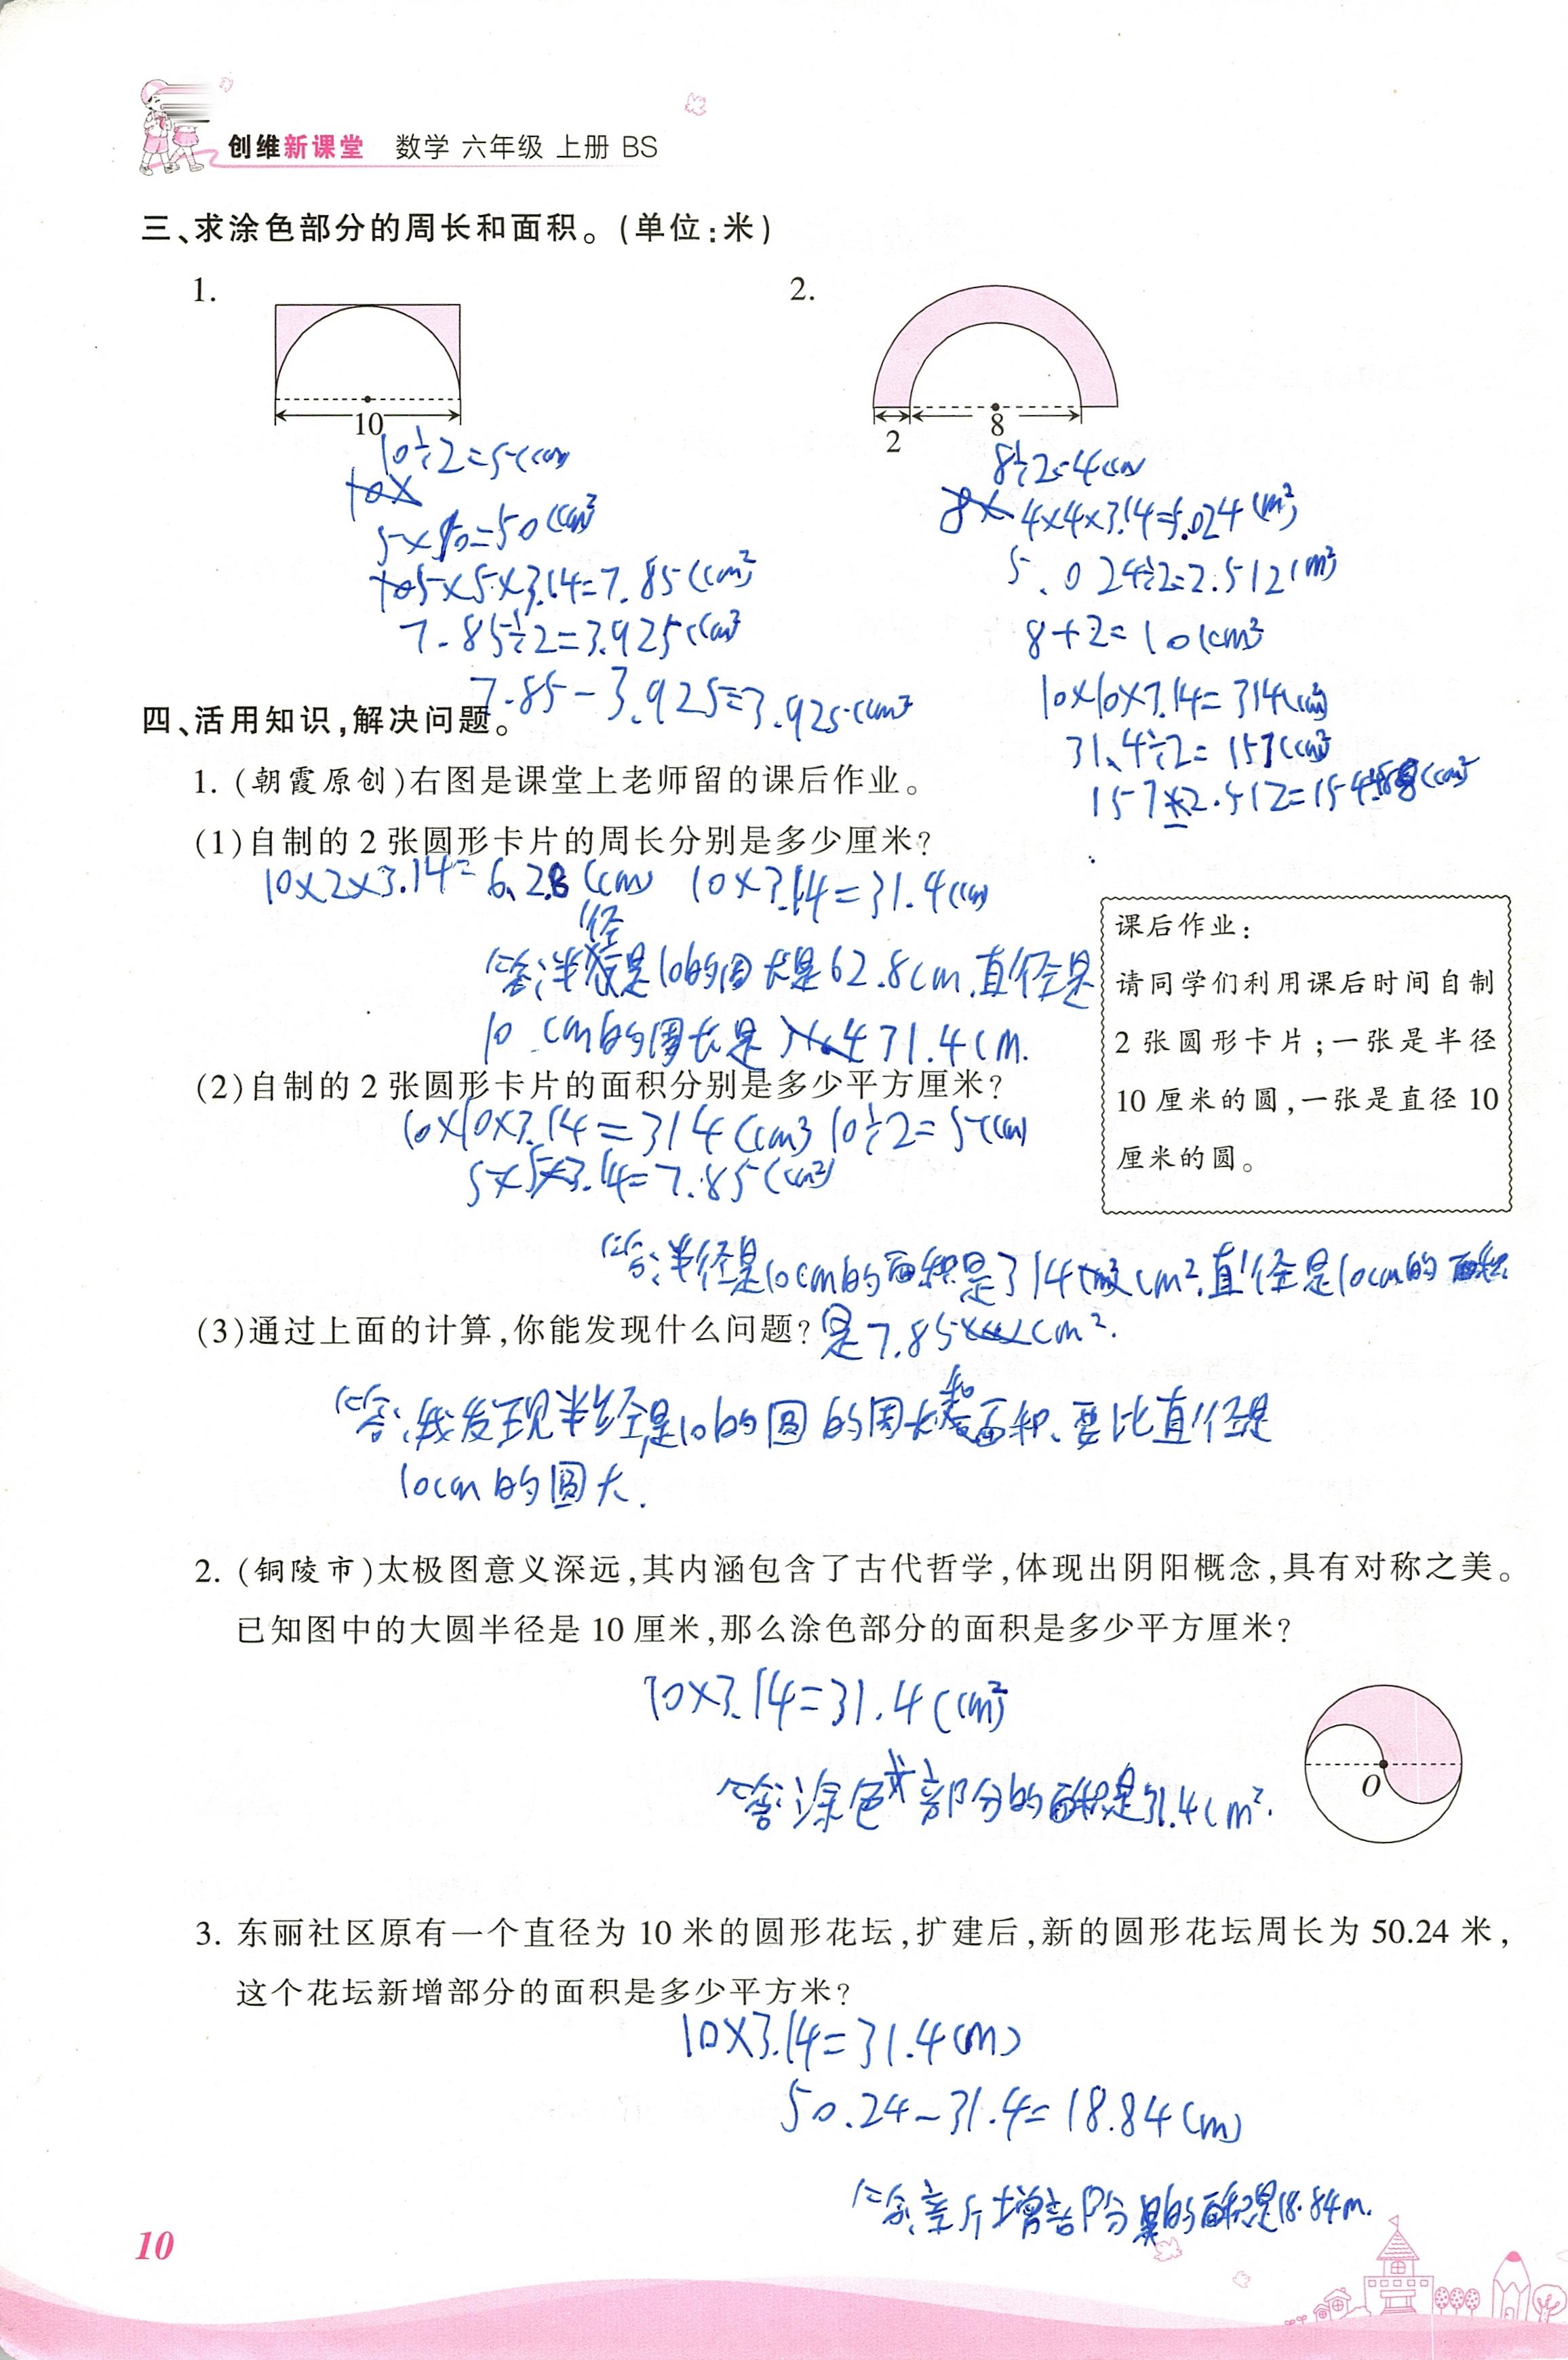 创维新课堂 数学 六年级 上册 BS
三、求涂色部分的周长和面积。(单位:米)
1.
2.
10
2
8
10÷2=5(cm)
5×10=50(cm²)
5×5×3.14=7.85(cm²)
7.85÷2=3.925(cm²)
7.85-3.925=3.925(cm²)
8÷2=4cm
4×4×3.14=5.024(m²)
5.024÷2=2.512(m²)
8+2=10(cm²)
10×10×3.14=314(cm²)
31.4÷2=157(cm²)
四、活用知识,解决问题。
1. (朝霞原创)右图是课堂上老师留的课后作业。
(1)自制的 2 张圆形卡片的周长分别是多少厘米?
10×2×3.14=6.28(cm) 10×3.14=31.4(cm)
答:半径是10的周长是62.8cm.直径是
10cm的周长是31.4cm.
课后作业:
请同学们利用课后时间自制
2 张圆形卡片;一张是半径
10 厘米的圆,一张是直径 10
厘米的圆。
(2)自制的 2 张圆形卡片的面积分别是多少平方厘米?
10×10×3.14=314(cm²) 10÷2=5(cm)
5×5×3.14=7.85(cm²)
答:半径是10cm的面积是314cm².直径是10cm的面积
(3)通过上面的计算,你能发现什么问题?
是7.85cm².
答:我发现半径是10的圆的周长和面积、要比直径是
10cm的圆大.
2. (铜陵市)太极图意义深远,其内涵包含了古代哲学,体现出阴阳概念,具有对称之美。
已知图中的大圆半径是 10 厘米,那么涂色部分的面积是多少平方厘米?
10×3.14=31.4(cm²)
答:涂色部分的面积是31.4cm².
O
3. 东丽社区原有一个直径为 10 米的圆形花坛,扩建后,新的圆形花坛周长为 50.24 米,
这个花坛新增部分的面积是多少平方米?
10×3.14=31.4(m)
50.24-31.4=18.84(m)
答:新增部分的面积是18.84m.
10